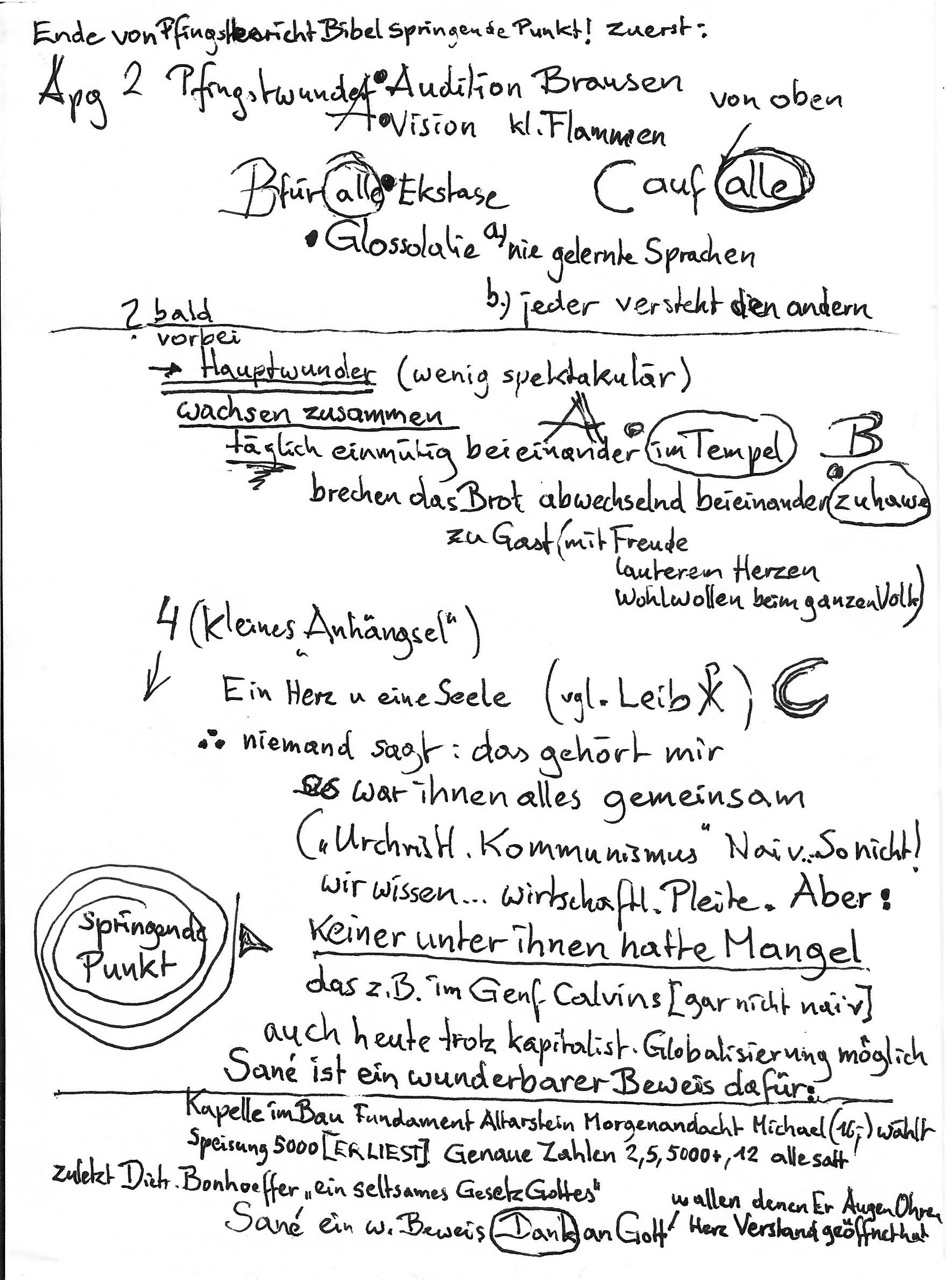 Ende von Pfingstbericht Bibel springende Punkt! zuerst:
Apg 2 Pfingstwunder • Audition Brausen
von oben
A • Vision kl. Flammen
B für alle • Ekstase C auf alle
• Glossolalie a) nie gelernte Sprachen
b.) jeder versteht den andern
? bald
vorbei
→ Hauptwunder (wenig spektakulär)
wachsen zusammen
täglich einmütig beieinander A • im Tempel B
brechen das Brot abwechselnd beieinander • zuhause
zu Gast (mit Freude
lauterem Herzen
Wohlwollen beim ganzen Volk)
4 (kleines „Anhängsel“)
Ein Herz u eine Seele (vgl. Leib ☧) C
∴ niemand sagt: das gehört mir
war ihnen alles gemeinsam
(„Urchristl. Kommunismus“ Naiv... So nicht!
wir wissen... wirtschaftl. Pleite. Aber:
springende
Punkt
keiner unter ihnen hatte Mangel
das z.B. im Genf Calvins [gar nicht naiv]
auch heute trotz kapitalist. Globalisierung möglich
Sané ist ein wunderbarer Beweis dafür:
Kapelle im Bau Fundament Altarstein Morgenandacht Michael (16,-) wählt
Speisung 5000 [ER LIEST] Genaue Zahlen 2, 5, 5000+, 12 alle satt!
zuletzt Dietr. Bonhoeffer „ein seltsames Gesetz Gottes“
v allen denen Er Augen Ohren
Sané ein w. Beweis Dank an Gott! Herz Verstand geöffnet hat